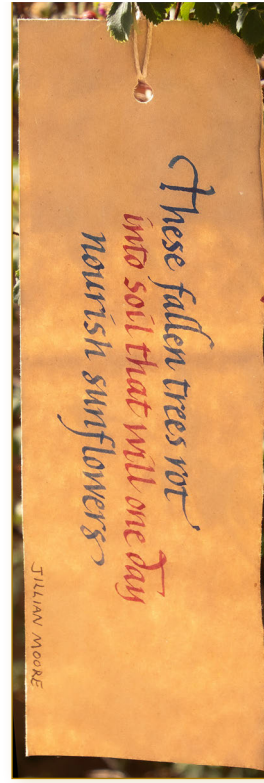 These fallen trees rot
into soil that will one day
nourish sunflowers
JILLIAN MOORE